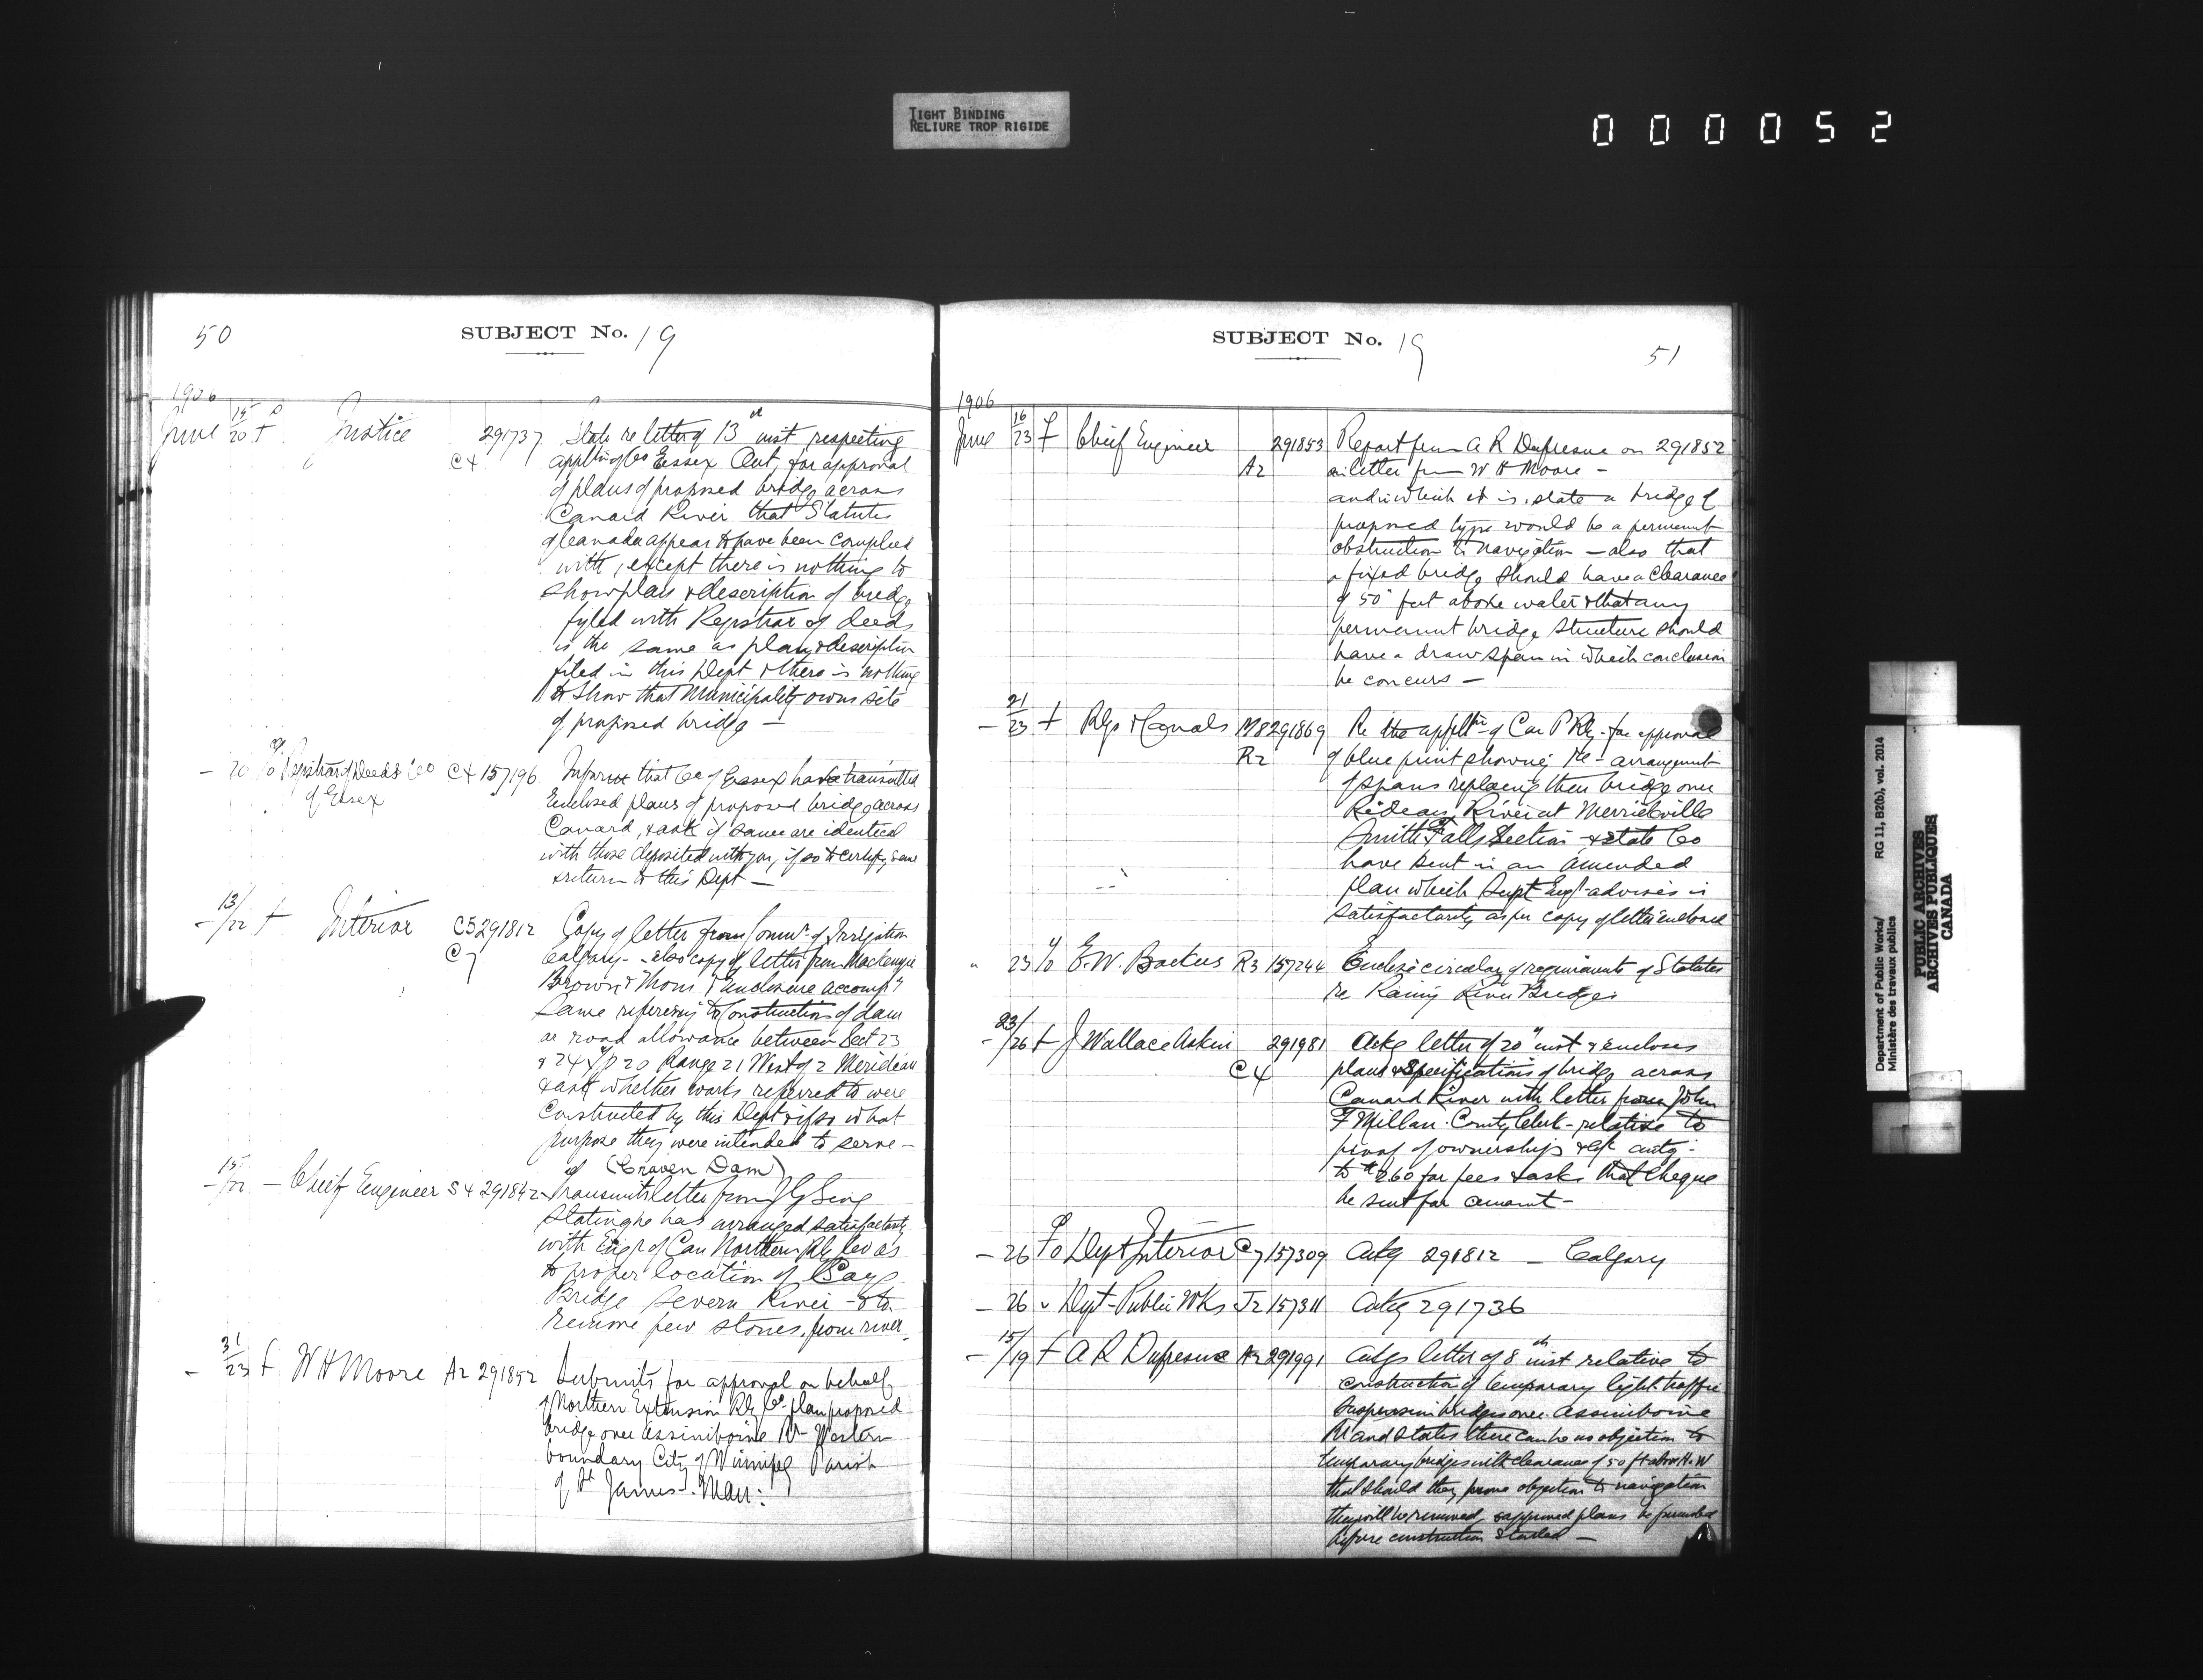 TIGHT BINDING
RELIURE TROP RIGIDE
0 0 0 0 0 5 2
50
SUBJECT No. 19
1906
June 15/20 f Justice 291737 State re letter of 13th inst respecting
C4 appltn of Co Essex Ont, for approval
of plans of proposed bridge across
Canard River that Statutes
of Canada appear to have been complied
with, except there is nothing to
show plan & description of bridge
fyled with Registrar of deeds
is the same as plan & description
filed in this Dept & there is nothing
to show that Municipality owns site
of proposed bridge —
— 20 To Registrar of Deeds Co C4 157196 Inform that Co of Essex have transmitted
of Essex
Enclosed plans of proposed bridge across
Canard, & ask if same are identical
with those deposited with you, if so to certify same
& return to this Dept —
— 13/22 f Interior C5 291812 Copy of letter from Comr of Irrigation
C7 Calgary - also copy of letter from Mackenzie
Brown & Thom & enclosure accompg
same refering to Construction of dam
on road allowance between Sect 23
& 24 Tp 20 Range 21 West of 2 Meridian
& ask whether works referred to were
Constructed by this Dept & if so what
purpose they were intended to serve —
(Craven Dam)
— 15/22 — Chief Engineer S4 291842 Transmits letter from J G Sing
stating he has arranged satisfactorily
with Engr of Can Northern Rly Co as
to proper location of
Bridge Severn River — & to
remove few stones from river.
— 31/23 f W H Moore A2 291852 Submits for approval on behalf
of Northern Extension Rly Co plan proposed
bridge over Assiniboine Rr Western
boundary City of Winnipeg Parish
of St James - Man:
SUBJECT No. 19
51
1906
June 16/23 f Chief Engineer 291853 Report from A R Dufresne on 291852
A2 on letter from W H Moore —
and in which it is state a bridge of
proposed type would be a permanent
obstruction to navigation — also that
a fixed bridge should have a clearance
of 50 feet above water & that any
permanent bridge structure should
have a draw span in which conclusion
he concurs —
— 21/23 f Rlys & Canals M8 291869 Re the appltn of Can P Rly - for approval
R2 of blue print showing re-arrangement
of spans replacing their bridge over
Rideau River at Merrickville
Smith Falls Section & state Co
have sent in an amended
plan which Supt Engr advises is
satisfactorily as per copy of letter enclosed
" 23 To E. W. Backus R3 157244 Enclose circular of requirements of Statutes
re Rainy River Bridges
— 23/26 f J Wallace Askin 291981 Ackg letter of 20th inst & encloses
C4 plans & Specifications of bridge across
Canard River with letter from John
F Millan County Clerk - relative to
proof of ownership
to $260 for fees & asks that cheque
be sent for amount —
— 26 To Dept Interior C7 157309 Ackg 291812 — Calgary
— 26 " Dept - Public Wks J2 157311 Ackg 291736
— 15/19 f A R Dufresne A2 291991 Ackgs letter of 8th inst relative to
construction of temporary light traffic
suspension bridges over Assiniboine
R and states there can be no objection to
temporary bridges with clearance of 50 ft above H.W
that should they prove objection to navigation
they will be removed, & approved plans be
before construction started —
Department of Public Works/
Ministère des travaux publics
RG 11, B2(b), vol. 2014
PUBLIC ARCHIVES
ARCHIVES PUBLIQUES
CANADA